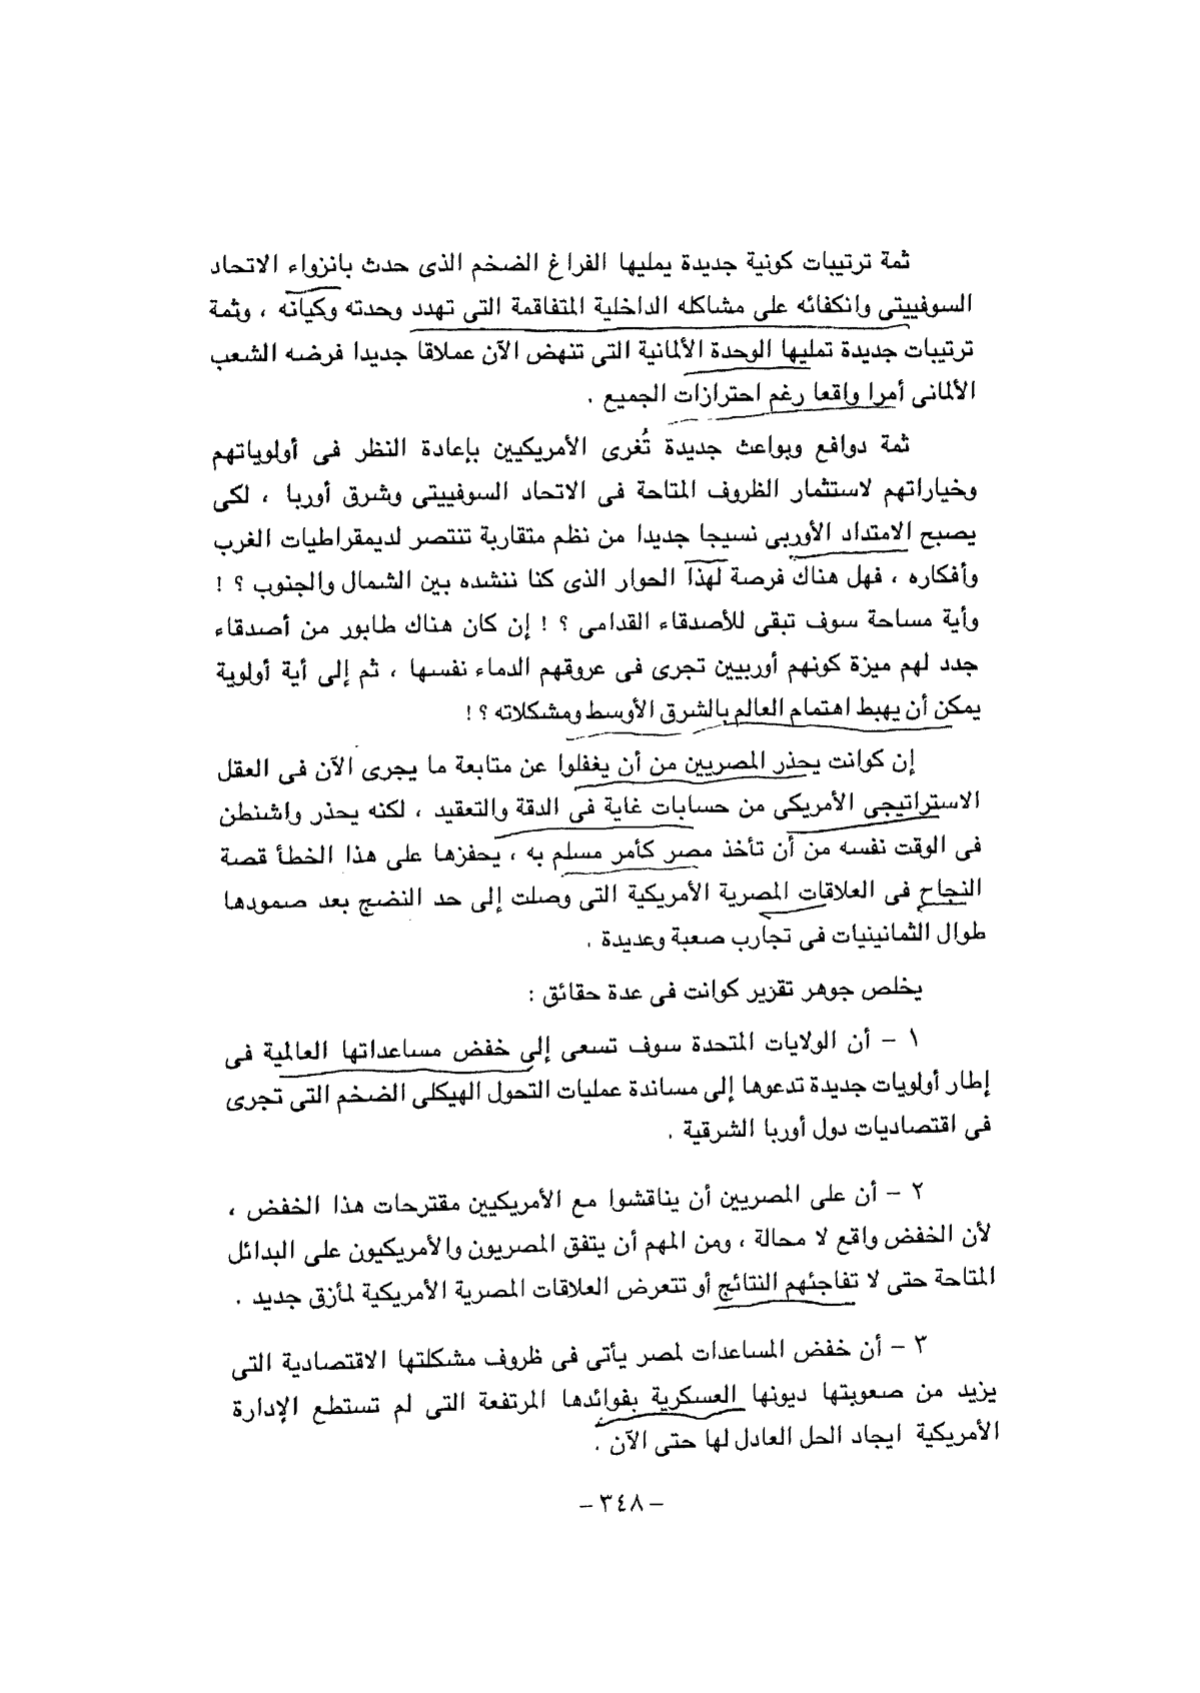 ثمة ترتيبات كونية جديدة يمليها الفراغ الضخم الذى حدث بانزواء الاتحاد
السوفييتى وانكفائه على مشاكله الداخلية المتفاقمة التى تهدد وحدته وكيانه ، وثمة
ترتيبات جديدة تمليها الوحدة الألمانية التى تنهض الآن عملاقا جديدا فرضه الشعب
الألمانى أمرا واقعا رغم احترازات الجميع .
ثمة دوافع وبواعث جديدة تُغرى الأمريكيين بإعادة النظر فى أولوياتهم
وخياراتهم لاستثمار الظروف المتاحة فى الاتحاد السوفييتى وشرق أوربا ، لكى
يصبح الامتداد الأوربى نسيجا جديدا من نظم متقاربة تنتصر لديمقراطيات الغرب
وأفكاره ، فهل هناك فرصة لهذا الحوار الذى كنا ننشده بين الشمال والجنوب ؟ !
وأية مساحة سوف تبقى للأصدقاء القدامى ؟ ! إن كان هناك طابور من أصدقاء
جدد لهم ميزة كونهم أوربيين تجرى فى عروقهم الدماء نفسها ، ثم إلى أية أولوية
يمكن أن يهبط اهتمام العالم بالشرق الأوسط ومشكلاته ؟ !
إن كوانت يحذر المصريين من أن يغفلوا عن متابعة ما يجرى الآن فى العقل
الاستراتيجى الأمريكى من حسابات غاية فى الدقة والتعقيد ، لكنه يحذر واشنطن
فى الوقت نفسه من أن تأخذ مصر كأمر مسلم به ، يحفزها على هذا الخطأ قصة
النجاح فى العلاقات المصرية الأمريكية التى وصلت إلى حد النضج بعد صمودها
طوال الثمانينيات فى تجارب صعبة وعديدة .
يخلص جوهر تقرير كوانت فى عدة حقائق :
١ – أن الولايات المتحدة سوف تسعى إلى خفض مساعداتها العالمية فى
إطار أولويات جديدة تدعوها إلى مساندة عمليات التحول الهيكلى الضخم التى تجرى
فى اقتصاديات دول أوربا الشرقية .
٢ – أن على المصريين أن يناقشوا مع الأمريكيين مقترحات هذا الخفض ،
لأن الخفض واقع لا محالة ، ومن المهم أن يتفق المصريون والأمريكيون على البدائل
المتاحة حتى لا تفاجئهم النتائج أو تتعرض العلاقات المصرية الأمريكية لمأزق جديد .
٣ – أن خفض المساعدات لمصر يأتى فى ظروف مشكلتها الاقتصادية التى
يزيد من صعوبتها ديونها العسكرية بفوائدها المرتفعة التى لم تستطع الإدارة
الأمريكية ايجاد الحل العادل لها حتى الآن .
– ٣٤٨ –